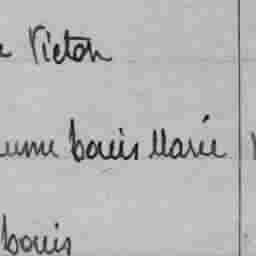 Victor
Louis Marie
Louis